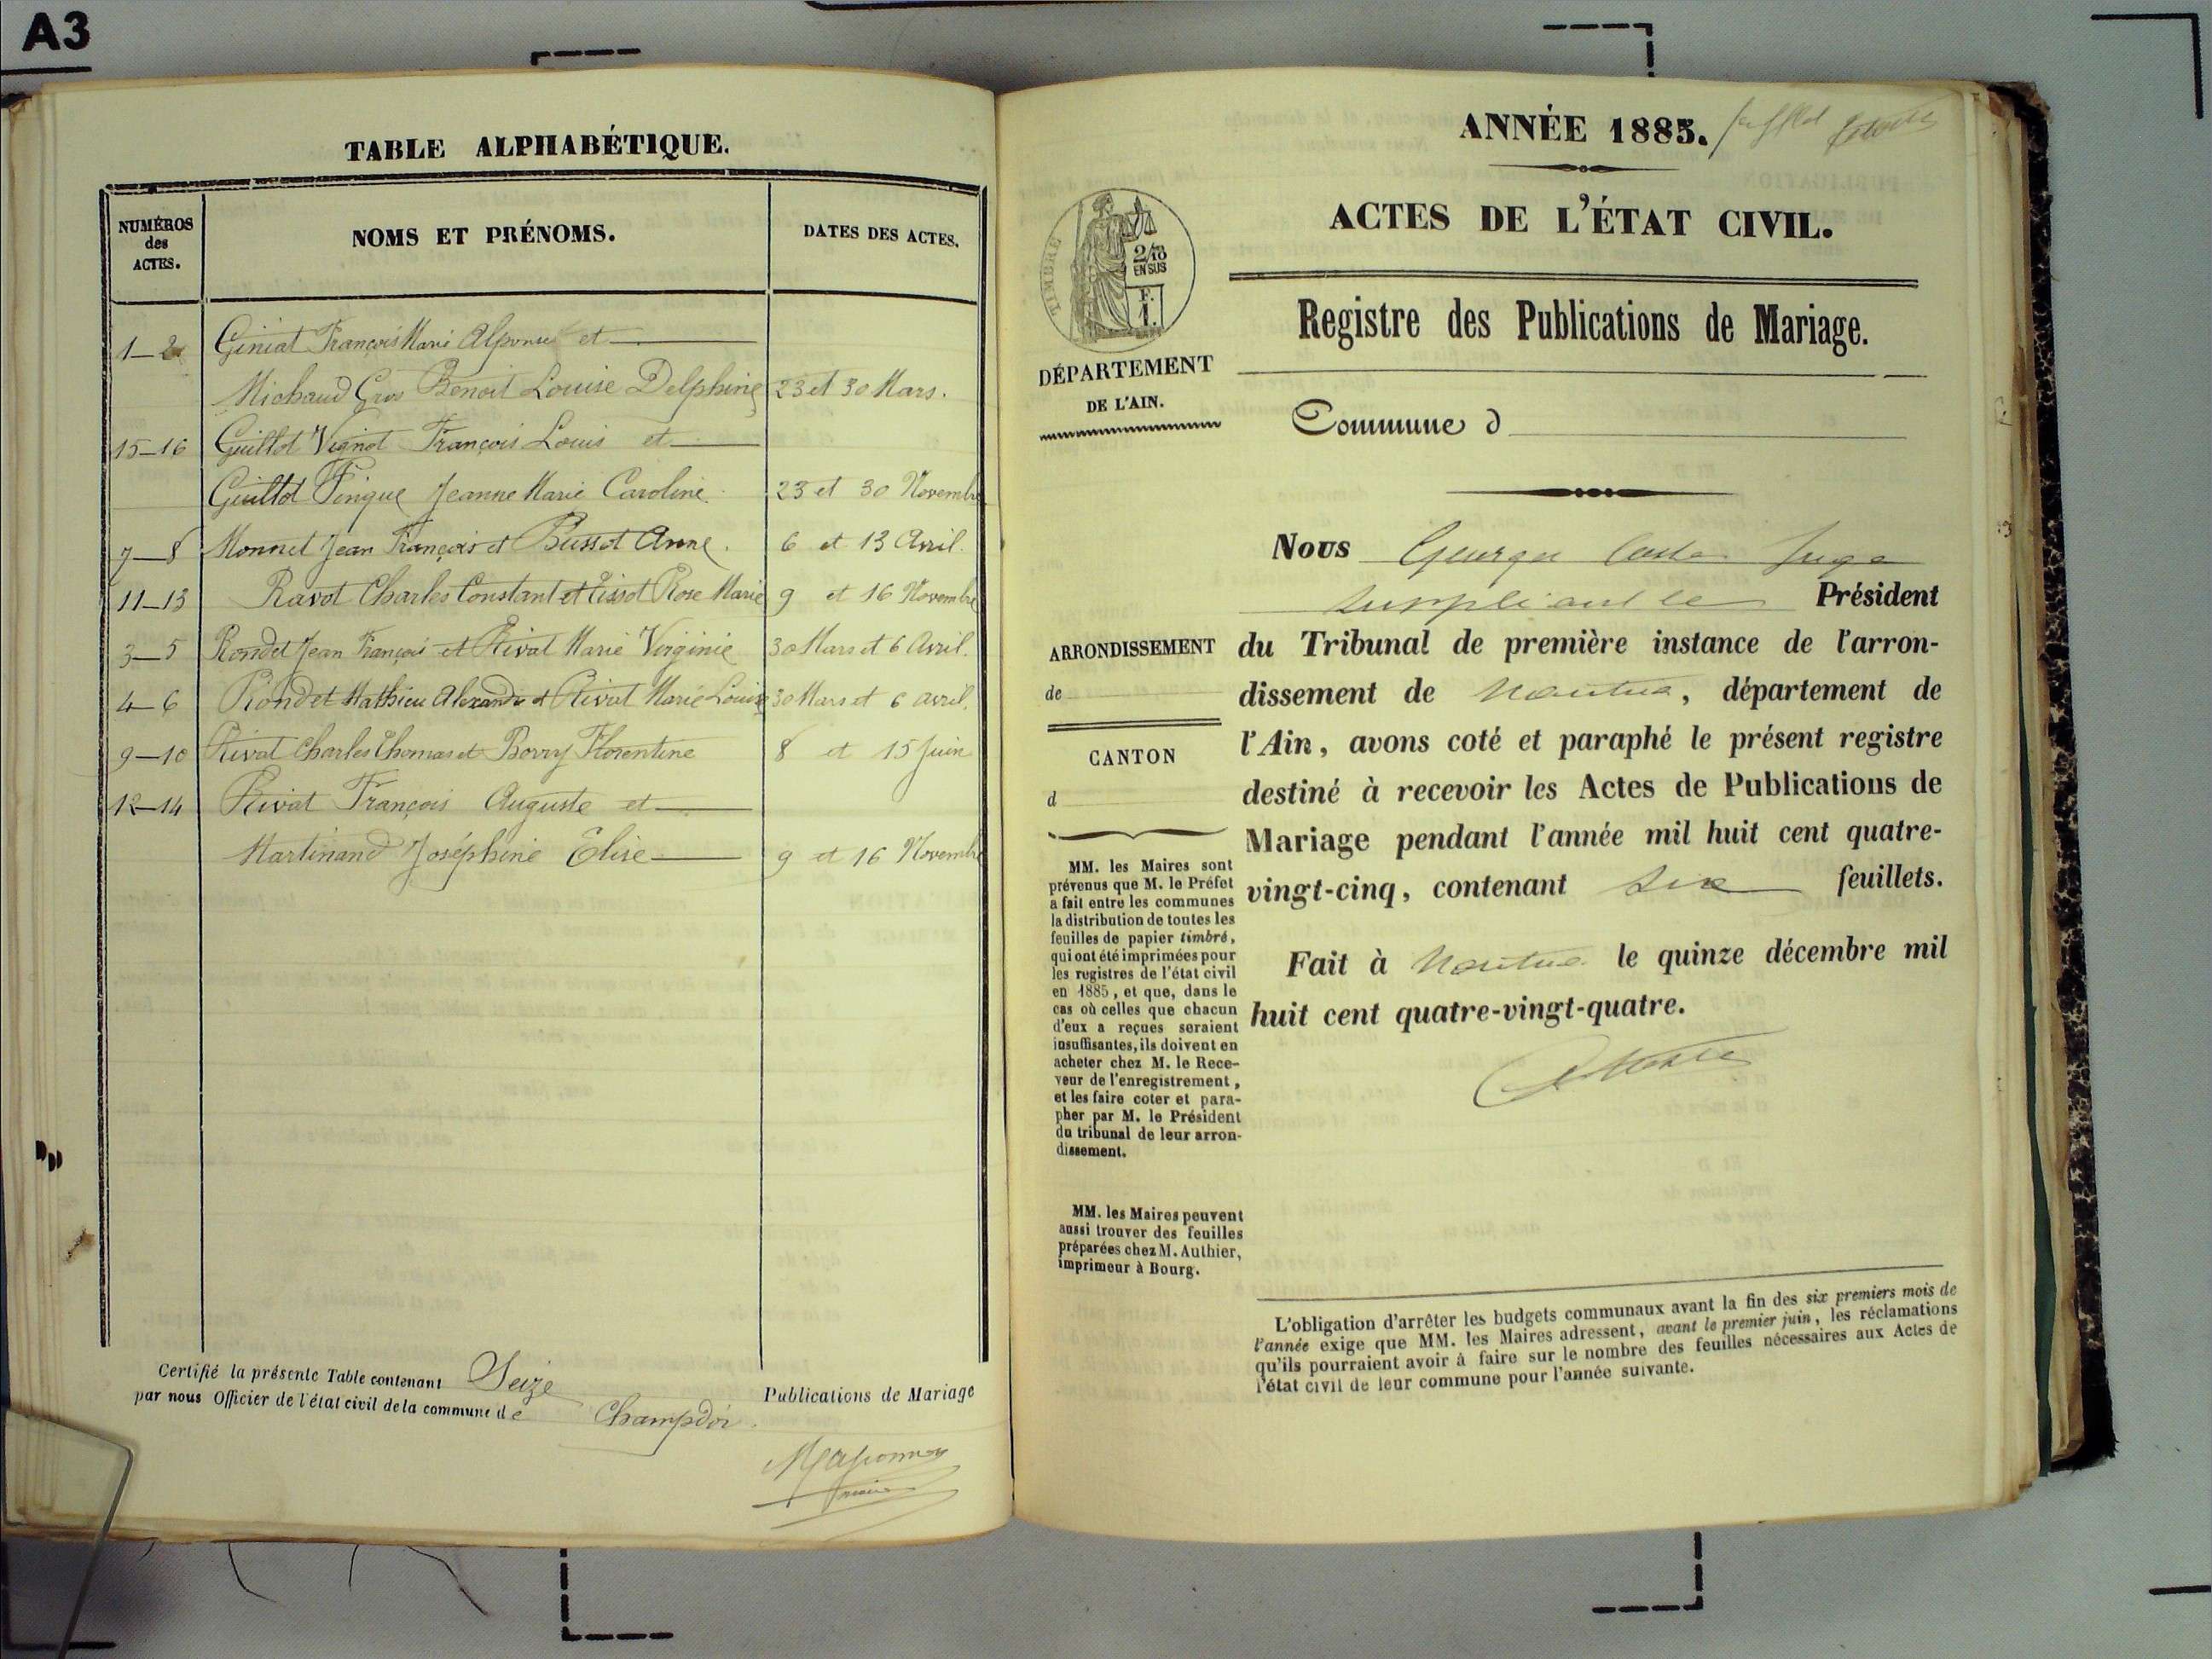 A3
TABLE ALPHABÉTIQUE.
NUMÉROS des ACTES.
NOMS ET PRÉNOMS.
DATES DES ACTES.
1—2 Giniat François Marie Alponse et
Michaud Gros Benoit Louise Delphine 23 et 30 Mars.
15—16 Guillot Vignot François Louis et
Guillot Pingue Jeanne Marie Caroline. 23 et 30 Novembre
7—8 Monnet Jean François et Bussot Anne. 6 et 13 Avril.
11—13 Ravot Charles Constant et Tissot Rose Marie 9 et 16 Novembre
3—5 Rondet Jean François et Rivat Marie Virginie 30 Mars et 6 Avril.
4—6 Rondet Mathieu Alexandre et Rivat Marie Louise 30 Mars et 6 avril.
9—10 Rivat Charles Thomas et Borry Florentine 8 et 15 Juin
12—14 Rivat François Auguste et
Martinand Joséphine Elise 9 et 16 Novembre
Certifié la présente Table contenant Seize Publications de Mariage
par nous Officier de l'état civil de la commune de Champdor.
maire
ANNÉE 1885.
ACTES DE L'ÉTAT CIVIL.
TIMBRE
2/10
EN SUS
F.
1.
Registre des Publications de Mariage.
DÉPARTEMENT
DE L'AIN.
Commune d
Nous Juge
suppléant le Président
ARRONDISSEMENT
de
du Tribunal de première instance de l'arron-
dissement de Nantua, département de
l'Ain, avons coté et paraphé le présent registre
destiné à recevoir les Actes de Publications de
Mariage pendant l'année mil huit cent quatre-
vingt-cinq, contenant six feuillets.
Fait à Nantua le quinze décembre mil
huit cent quatre-vingt-quatre.
CANTON
d
MM. les Maires sont
prévenus que M. le Préfet
a fait entre les communes
la distribution de toutes les
feuilles de papier timbré,
qui ont été imprimées pour
les registres de l'état civil
en 1885, et que, dans le
cas où celles que chacun
d'eux a reçues seraient
insuffisantes, ils doivent en
acheter chez M. le Rece-
veur de l'enregistrement,
et les faire coter et para-
pher par M. le Président
du tribunal de leur arron-
dissement.
MM. les Maires peuvent
aussi trouver des feuilles
préparées chez M. Authier,
imprimeur à Bourg.
L'obligation d'arrêter les budgets communaux avant la fin des six premiers mois de
l'année exige que MM. les Maires adressent, avant le premier juin, les réclamations
qu'ils pourraient avoir à faire sur le nombre des feuilles nécessaires aux Actes de
l'état civil de leur commune pour l'année suivante.